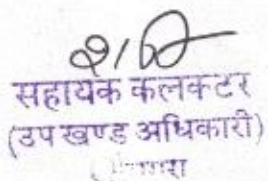 सहायक कलक्टर
(उपखण्ड अधिकारी)